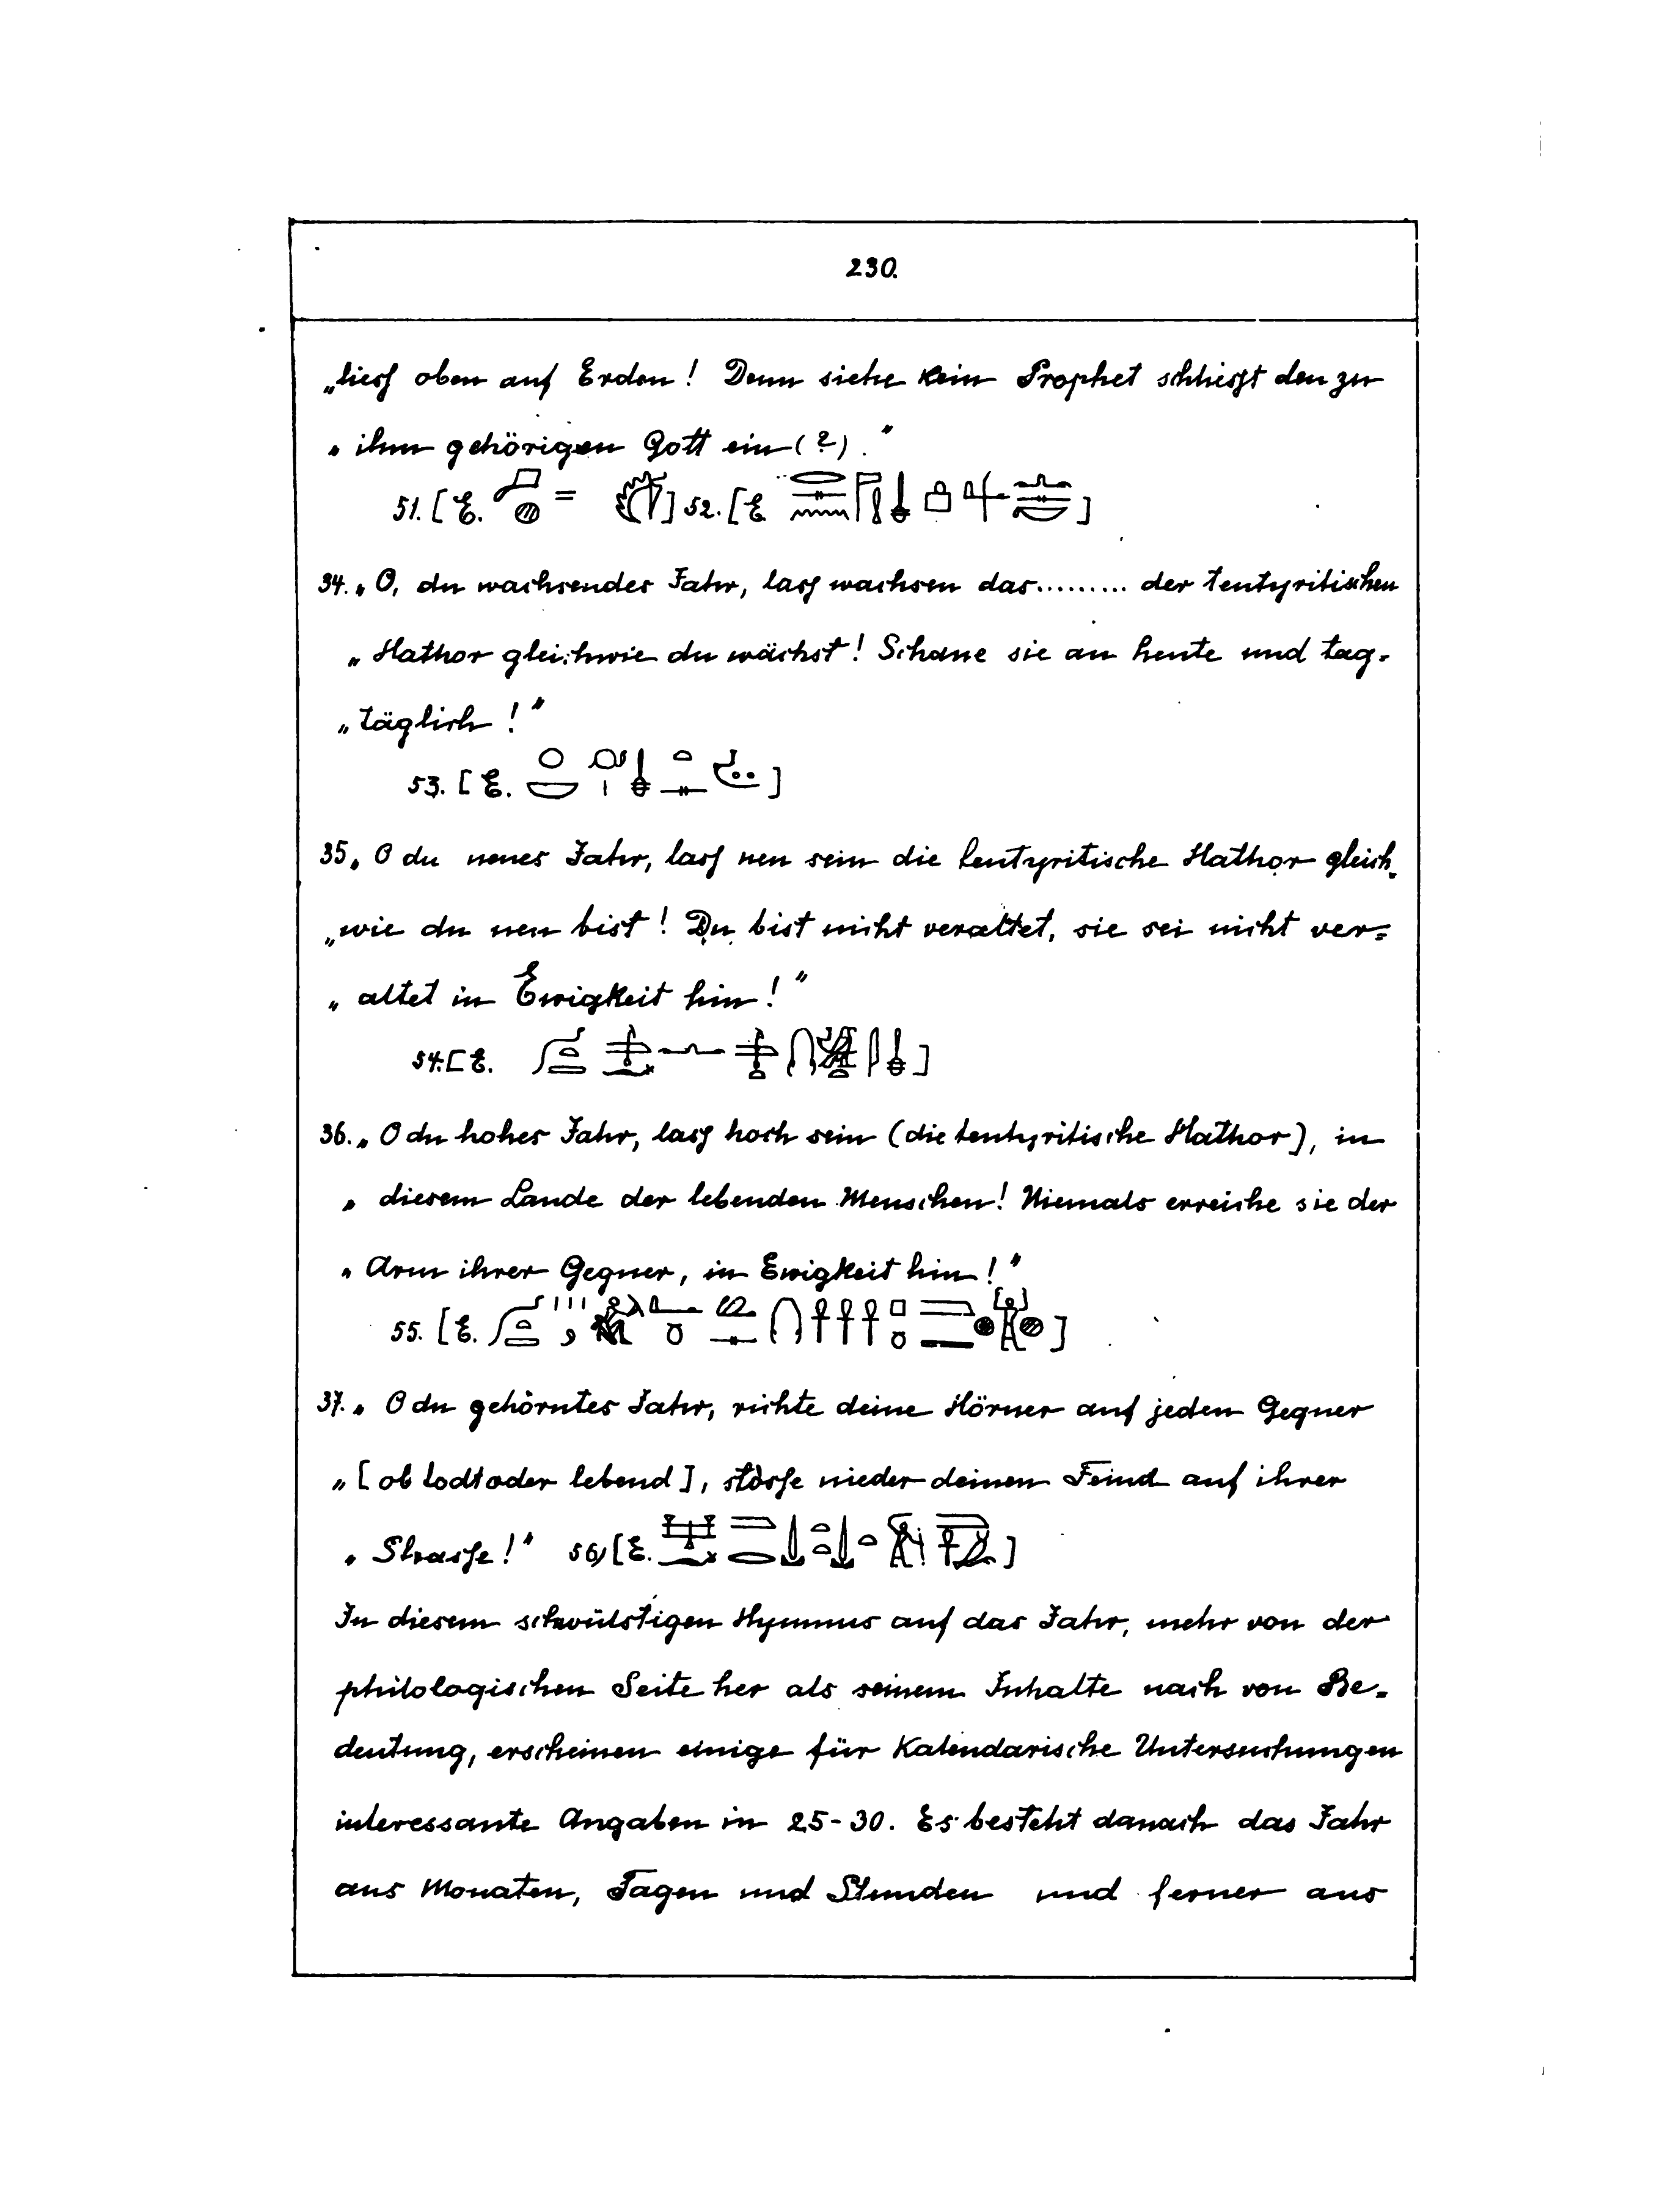 230.
„liesſ oben auf Erden! Denn siehe kein Prophet schliesſt den zu
„ ihm gehörigen Gott ein (?)."
51. [E. = ] 52. [E. ]
34. „O, du wachsendes Jahr, lasſ wachsen das......... der tentyritischen
„Hathor gleichwie du wächst! Schaue sie an heute und tag-
„täglich!"
53. [E. ]
35. „O du neues Jahr, lasſ neu sein die tentyritische Hathor gleich-
„wie du neu bist! Du bist nicht veraltet, sie sei nicht ver=
„ altet in Ewigkeit hin!"
54. [E. ]
36. „O du hohes Jahr, lasſ hoch sein (die tentyritische Hathor), in
„ diesem Lande der lebenden Menschen! Niemals erreiche sie der
„ Arm ihrer Gegner, in Ewigkeit hin!"
55. [E. ]
37. „ O du gehörntes Jahr, richte deine Hörner auf jeden Gegner
„[ob todt oder lebend], stosſe nieder deinen Feind auf ihrer
„ Strasſe!" 56, [E. ]
In diesem schwülstigen Hymnus auf das Jahr, mehr von der
philologischen Seite her als seinem Inhalte nach von Be-
deutung, erscheinen einige für kalendarische Untersuchungen
interessante Angaben in 25-30. Es besteht danach das Jahr
aus Monaten, Tagen und Stunden und ferner aus